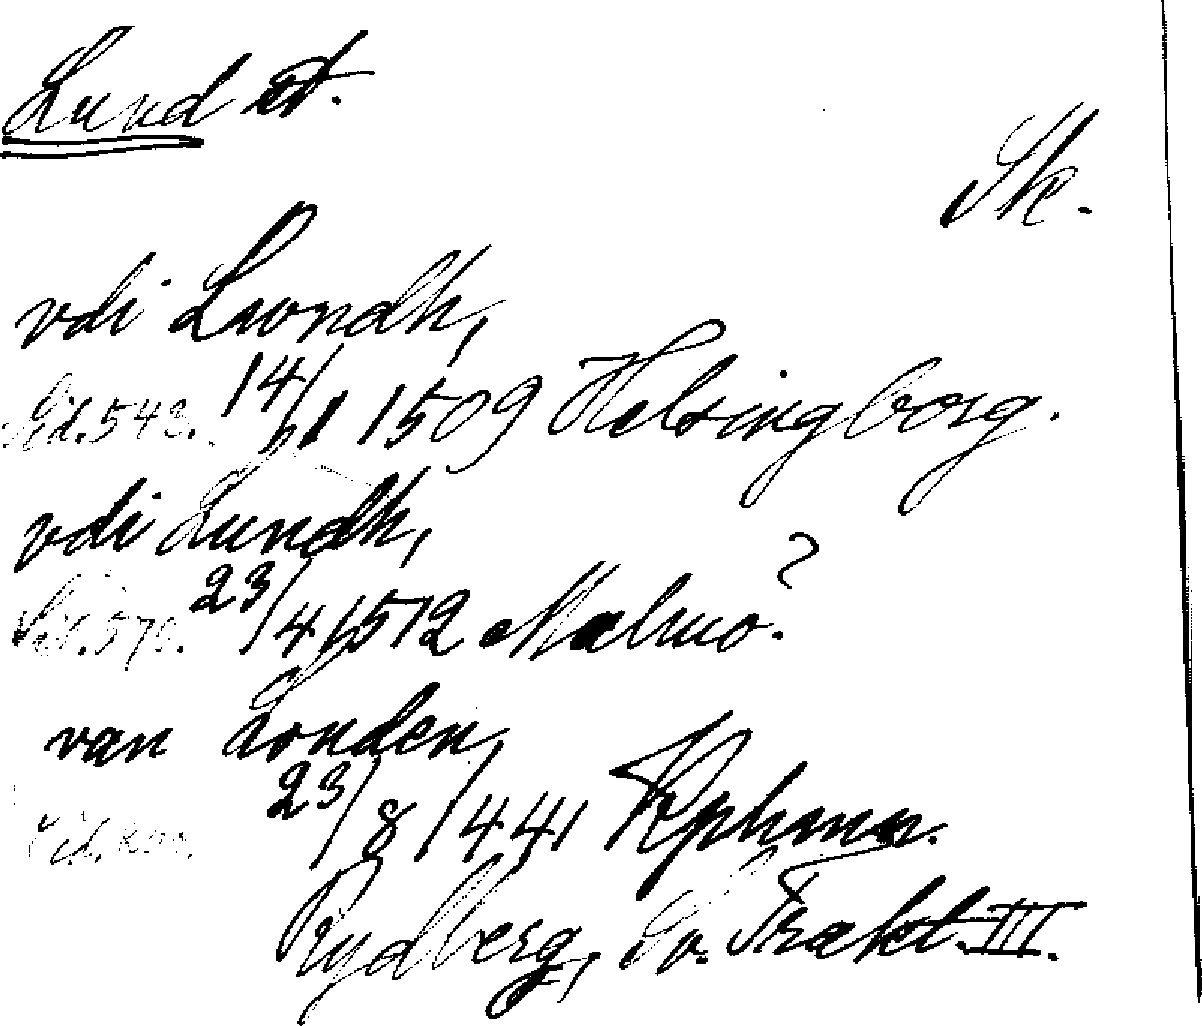 Lund st.
Sk.
vdi Lwndh,
Sid. 543. 14/11 1509 Helsingborg.
vdi Lundh,
Sid. 570. 23/4 1512 Malmö?
van Londen,
Sid. 23/8 1441 Kphmn.
Rydberg, Sv. Trakt. III.